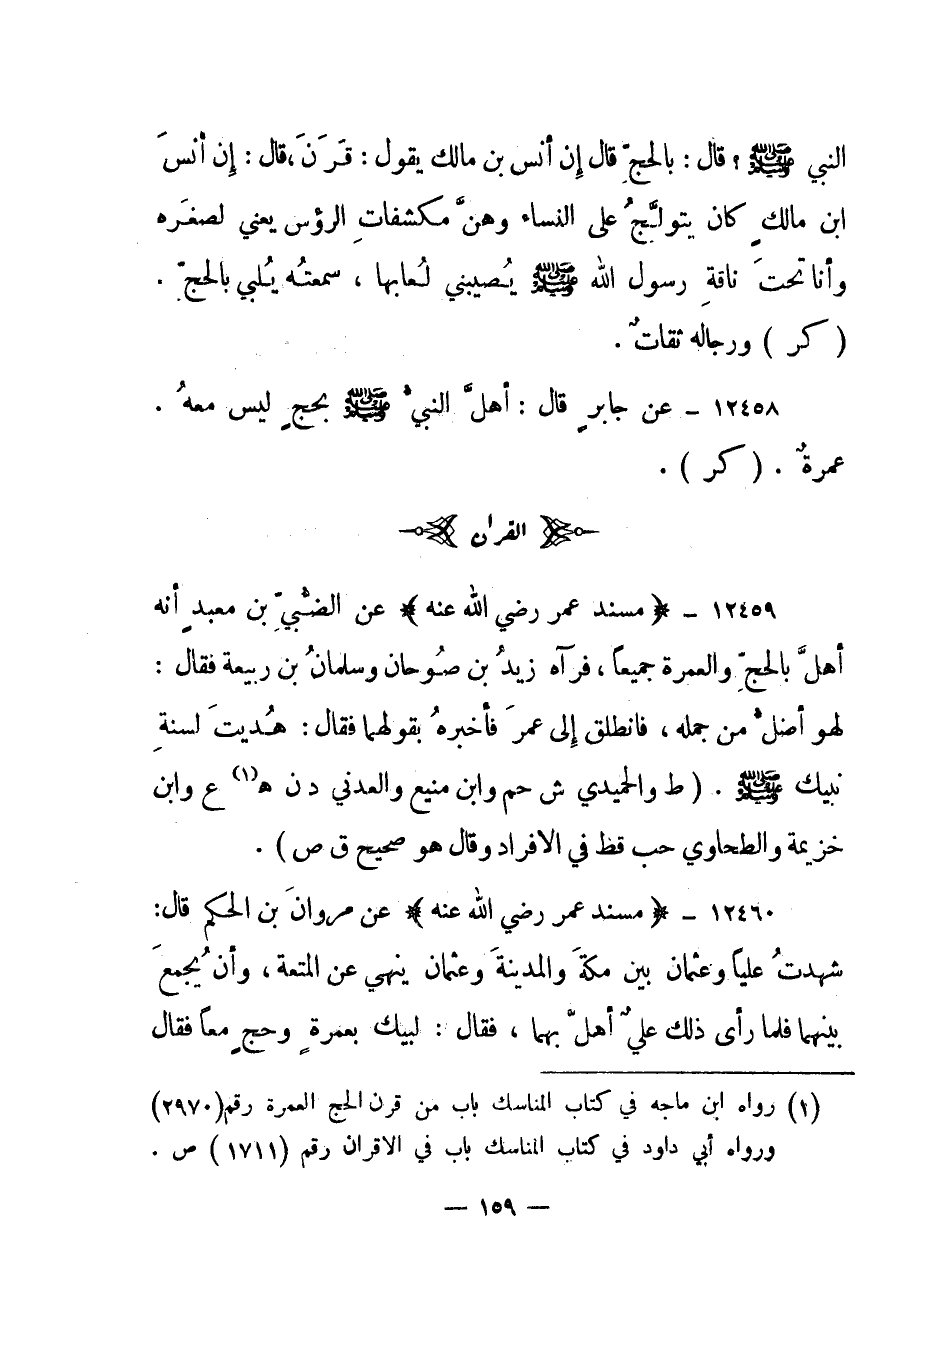 النبي ﷺ ؟ قال : بالحجِّ قال إن أنس بن مالك يقول : قَرَنَ ، قال : إن أنسَ
ابن مالكٍ كان يتولَّجُ على النساء وهنَّ مكشفاتِ الرؤس يعني لصغَره
وأنا تحتَ ناقةِ رسول الله ﷺ يُصيبني لُعابها ، سمعتُه يُلبي بالحجِّ .
( كر ) ورجاله ثقاتٌ .
١٢٤٥٨ – عن جابرٍ قال : أهلَّ النبيُّ ﷺ بحجٍ ليس معهُ .
عمرةٌ . ( كر ) .
القران
١٢٤٥٩ – ﴿ مسند عمر رضي الله عنه ﴾ عن الضبُّيِّ بن معبدٍ أنه
أهلَّ بالحجِّ والعمرة جميعاً ، فرآه زيدُ بن صُوحان وسلمانُ بن ربيعة فقال :
لهو أضلُّ من جمله ، فانطلق إلى عمرَ فأخبرهُ بقولهما فقال : هُديتَ لسنةِ
نبيك ﷺ . ( ط والحميدي ش حم وابن منيع والعدني د ن ه‍(١) ع وابن
خزيمة والطحاوي حب قط في الافراد وقال هو صحيح ق ص ) .
١٢٤٦٠ – ﴿ مسند عمر رضي الله عنه ﴾ عن مروانَ بن الحكم قال :
شهدتُ علياً وعثمان بين مكةَ والمدينةَ وعثمان ينهي عن المتعة ، وأن يُجمعَ
بينهما فلما رأى ذلك عليٌ أهلَّ بهما ، فقال : لبيك بعمرةٍ وحجٍ معاً فقال
(١) رواه ابن ماجه في كتاب المناسك باب من قرن الحج العمرة رقم (٢٩٧٠)
ورواه أبي داود في كتاب المناسك باب في الاقران رقم (١٧١١) ص .
— ١٥٩ —